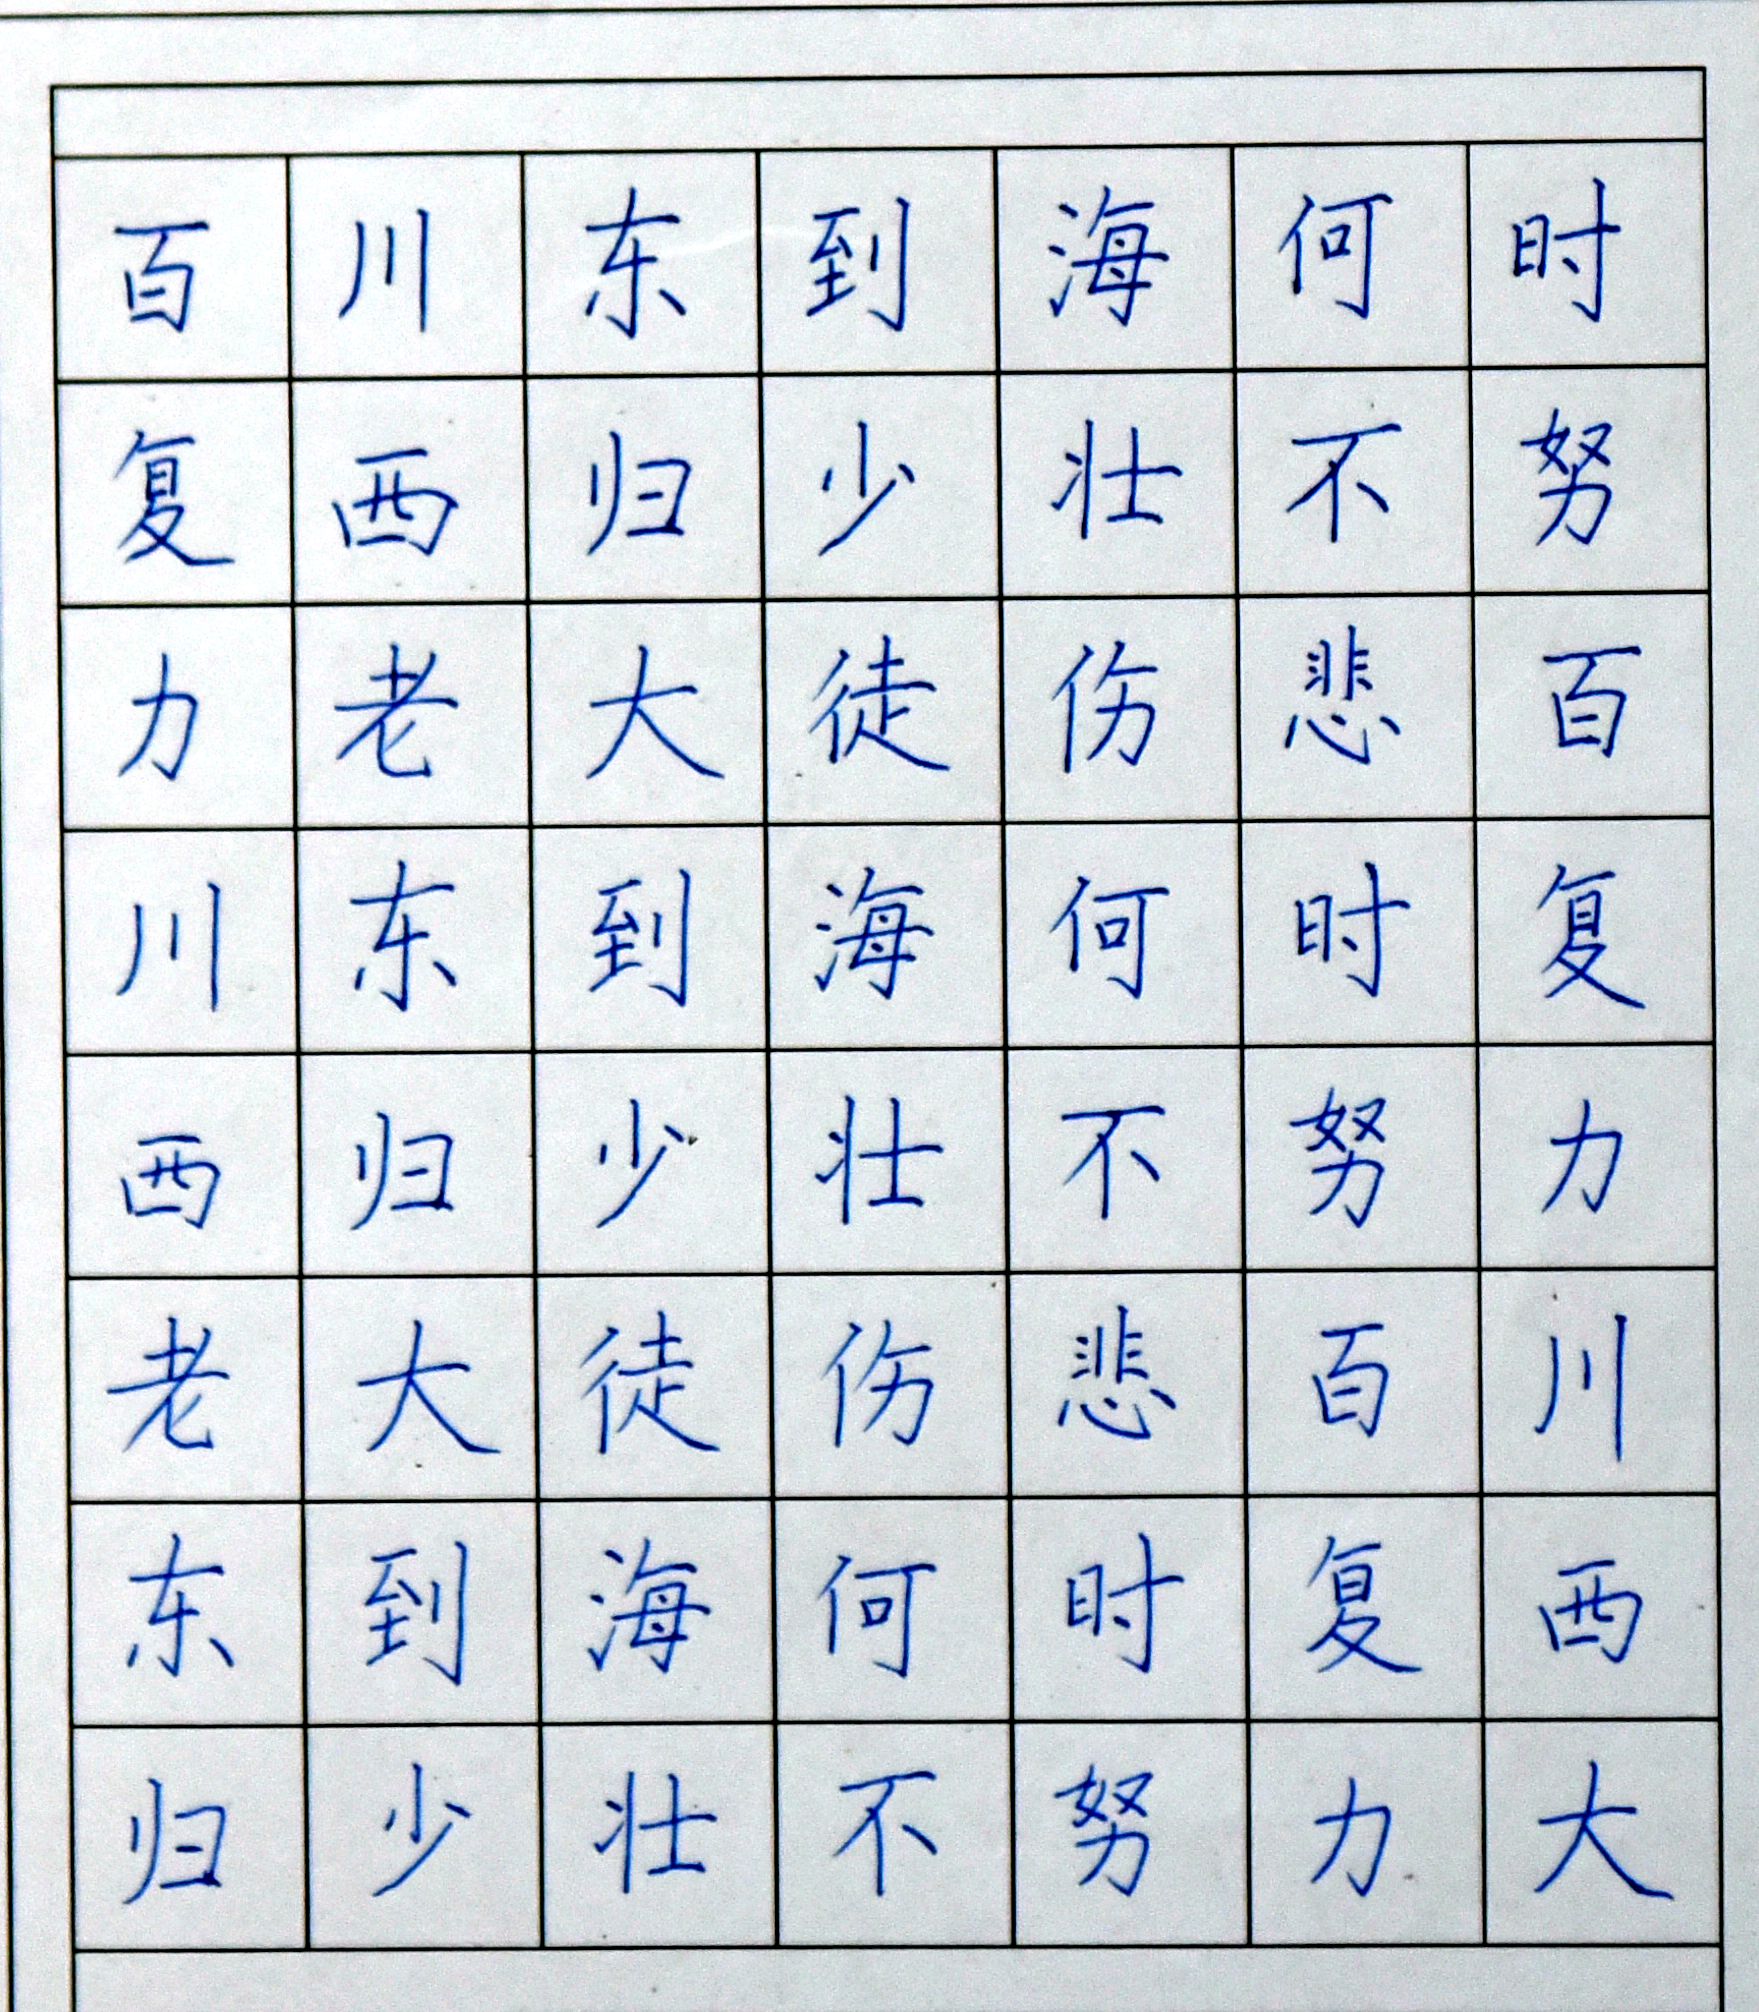 百川东到海何时
复西归少壮不努
力老大徒伤悲百
川东到海何时复
西归少壮不努力
老大徒伤悲百川
东到海何时复西
归少壮不努力大